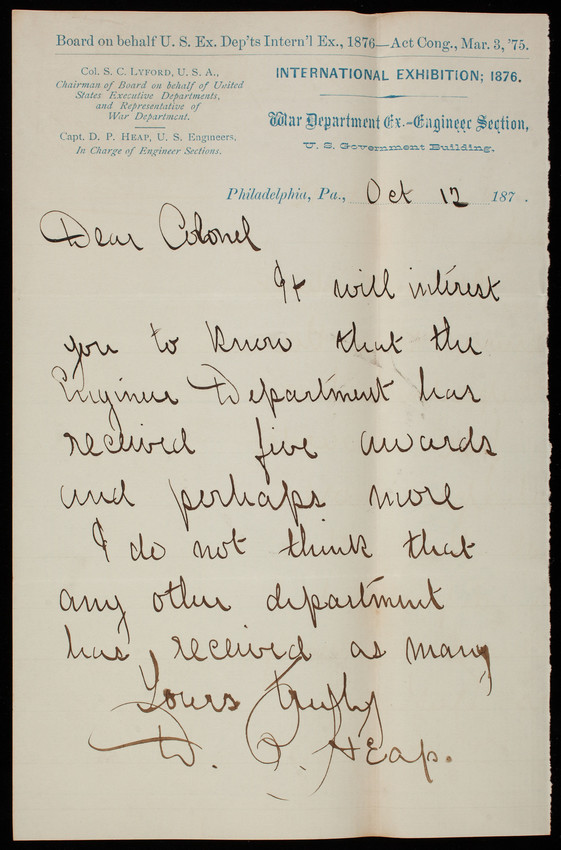 Board on behalf U. S. Ex. Dep'ts Intern'l Ex., 1876—Act Cong., Mar. 3, '75.
Col. S. C. Lyford, U. S. A.,
Chairman of Board on behalf of United
States Executive Departments,
and Representative of
War Department.
Capt. D. P. Heap, U. S. Engineers,
In Charge of Engineer Sections.
INTERNATIONAL EXHIBITION; 1876.
War Department Ex.-Engineer Section,
U. S. Government Building.
Philadelphia, Pa., Oct 12 187 .
Dear Colonel
It will interest
you to know that the
Engineer Department has
received five awards
and perhaps more
I do not think that
any other department
has received as many
Yours truly
D. P. Heap.